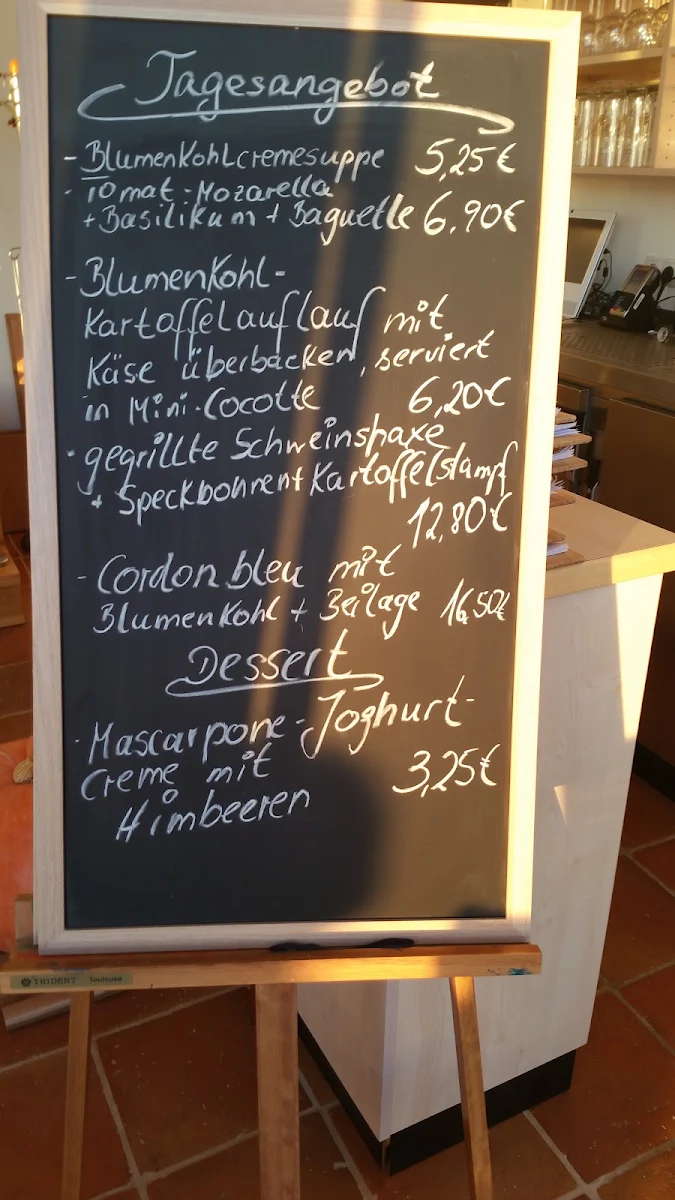 Tagesangebot
- Blumenkohlcremesuppe 5,25 €
- Tomat-Mozarella
+ Basilikum + Baguette 6.90€
- Blumenkohl-
Kartoffelauflauf mit
Käse überbacken, serviert
in Mini-Cocotte 6,20€
- gegrillte Schweinshaxe
+ Speckbohnen+Kartoffelstampf
12,80€
- Cordon bleu mit
Blumenkohl + Beilage 16,50€
Dessert
- Mascarpone-Joghurt-
Creme mit 3,25€
Himbeeren
TRIDENT Toulouse